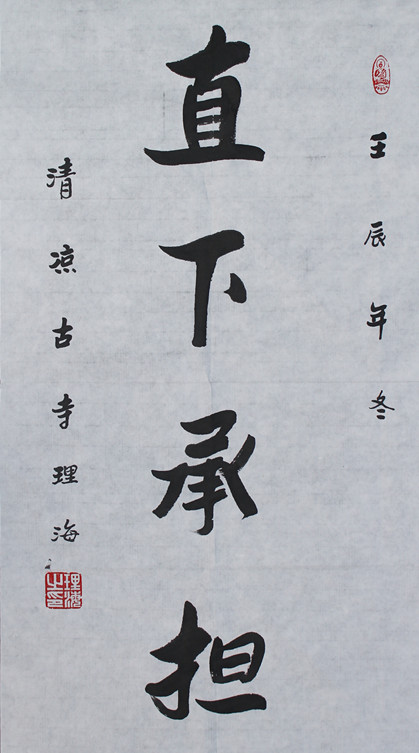 壬辰年冬
直下承担
清凉古寺理海
理海之印